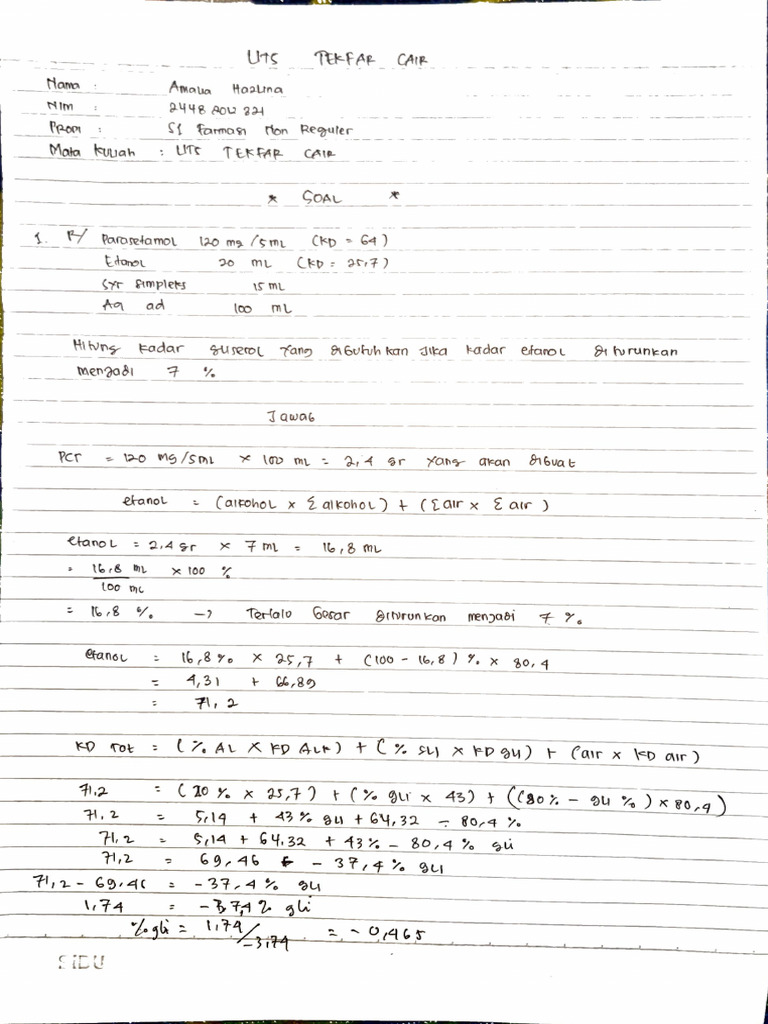 UTS TEKFAR CAIR
Nama : Amalia Hazlina
NIM : 2448 201 321
Prodi : S1 Farmasi Non Reguler
Mata Kuliah : UTS TEKFAR CAIR
* SOAL *
1. R/ Parasetamol 120 mg /5 mL (KD = 64)
Etanol 20 mL (KD = 25,7)
Syr simpleks 15 mL
Aq ad 100 mL
Hitung kadar gliserol yang dibutuhkan jika kadar etanol diturunkan
menjadi 7 %
Jawab
PCT = 120 mg/5mL × 100 mL = 2,4 gr yang akan dibuat
etanol = (alkohol × Σ alkohol) + (Σ air × Σ air)
etanol = 2,4 gr × 7 mL = 16,8 mL
= 16,8 mL / 100 mL × 100 %
= 16,8 % → Terlalo besar diturunkan menjadi 7 %
etanol = 16,8 % × 25,7 + (100 - 16,8) % × 80,4
= 4,31 + 66,89
= 71,2
KD Tot = (% AL × KD Alk) + (% gli × KD gli) + (air × KD air)
71,2 = (20 % × 25,7) + (% gli × 43) + ((80% - gli %) × 80,4)
71,2 = 5,14 + 43 % gli + 64,32 - 80,4 %
71,2 = 5,14 + 64,32 + 43 % - 80,4 % gli
71,2 = 69,46 - 37,4 % gli
71,2 - 69,46 = -37,4 % gli
1,74 = -37,4 % gli
% gli = 1,74 / -3,74 = - 0,465
SiDU